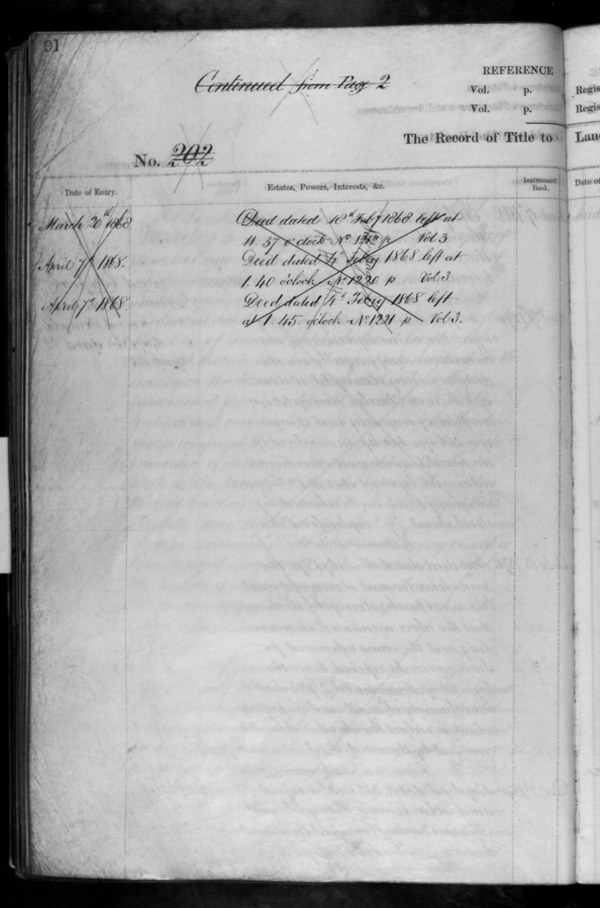 91
Continued from Page 2
REFERENCE
Vol. p.
Vol. p.
The Record of Title to
No. 202
Date of Entry.
Estates, Powers, Interests, &c.
Instrument Book.
March 30th 1868
Deed dated 18th Feby 1868 left at
11. 57 o'clock No p Vol 3
April 7th 1868.
Deed dated 4th Feby 1868 left at
1. 40 o'clock No 1220 p Vol 3
April 7th 1868
Deed dated 4th Feby 1868 left
at 1. 45. o'clock No 1221 p Vol 3.
Regis
Regis
Land
Date of